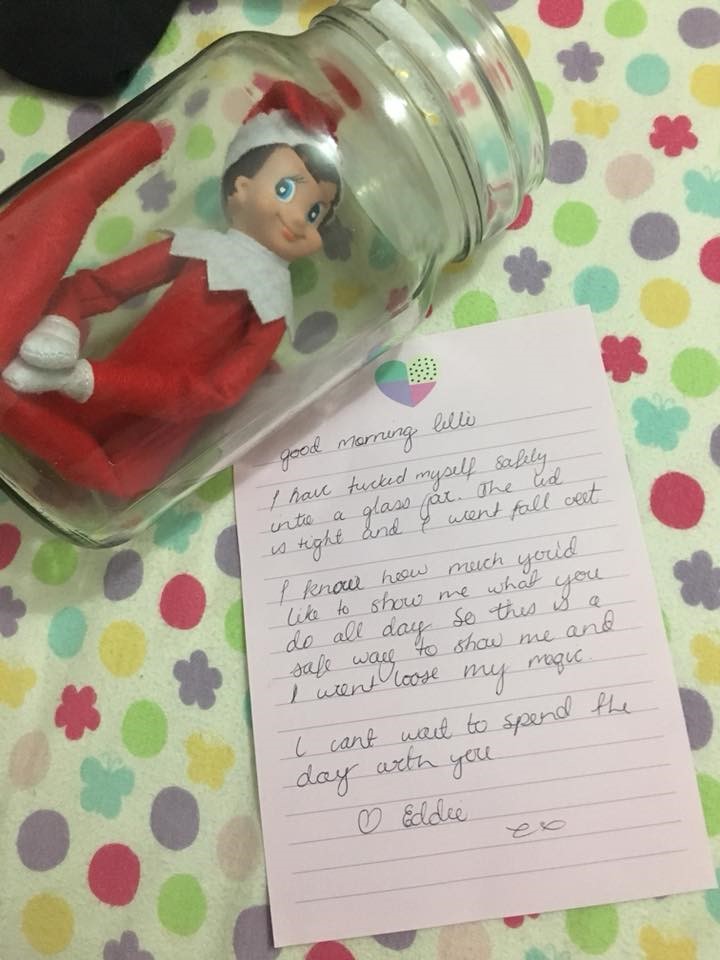 good morning lilli
I have tucked myself safely
into a glass jar. The lid
is tight and I wont fall out
I know how much you'd
like to show me what you
do all day. So this is a
safe way to show me and
I wont loose my magic.
I cant wait to spend the
day with you
♡ Eddie
xx